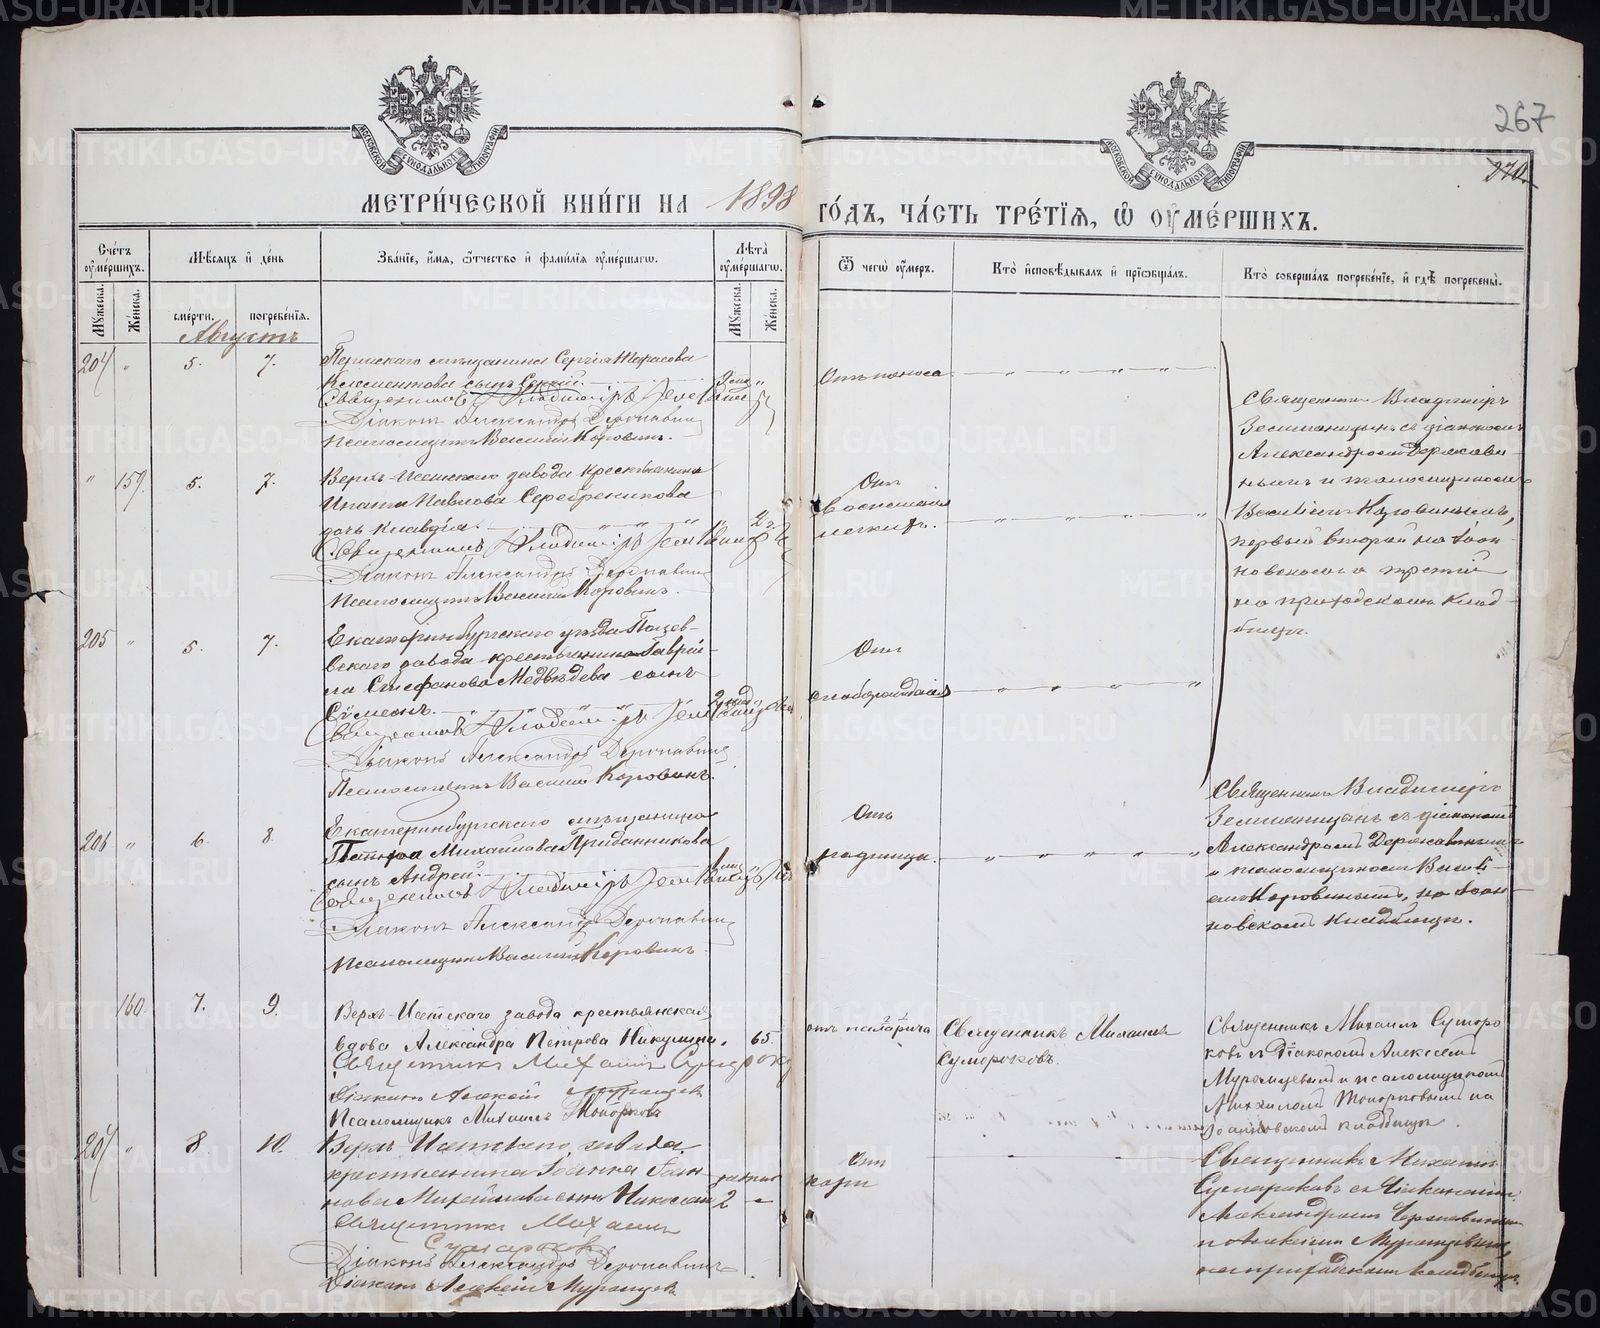 267
270.
МЕТРИ́ЧЕСКОЙ КНИ́ГИ НА 1898 ГО́ДЪ, ЧА́СТЬ ТРЕ́ТІѦ, Ѡ҆ ОУ҆МЕ́РШИХЪ.
Сче́тъ оу҆ме́ршихъ.
Мѣ́сѧцъ и҆ де́нь
Зва́ніе, и҆́мѧ, ѻ҆́тчество и҆ фами́лїѧ оу҆ме́ршагѡ.
Лѣ́та оу҆ме́ршагѡ.
Ѿ чегѡ̀ оу҆́меръ.
Кто̀ и҆сповѣ́дывалъ и҆ прїѡбща́лъ.
Кто̀ соверша́лъ погребе́нїе, и҆ гдѣ̀ погребены̀.
Мꙋ́жеска.
Же́нска.
сме́рти.
погребе́нїѧ.
Мꙋ́жеска.
Же́нска.
Августъ
204 " 5. 7.
Пермскаго мѣщанина Сергія Тарасова
Клементова сынъ Сергій.
Священникъ Владиміръ Земляницынъ
Діаконъ Александръ Державинъ
Псаломщикъ Василій Коровинъ.
Отъ поноса
Священникъ Владиміръ
Земляницынъ съ діакономъ
Александромъ Держави-
нымъ и псаломщикомъ
Василіемъ Коровинымъ,
первый второй на Іоан-
новскомъ а третій
на приходскомъ клад-
бищѣ.
" 159. 5. 7.
Верхъ-Исетскаго завода крестьянина
Игнатія Павлова Серебреникова
дочь Клавдія.
Священникъ Владиміръ Земляницынъ
Діаконъ Александръ Державинъ
Псаломщикъ Василій Коровинъ.
Отъ
воспаленія
легкихъ.
205 " 5. 7.
Екатеринбургскаго уѣзда
скаго завода крестьянина Гаврій-
ла Стефанова Медвѣдева сынъ
Сѵмеонъ.
Священникъ Владиміръ Земляницынъ
Діаконъ Александръ Державинъ
Псаломщикъ Василій Коровинъ.
2 нед.
Отъ
слаборожденія
206 " 6. 8.
Екатеринбургскаго мѣщанина
Михайлова Приданникова
сынъ Андрей.
Священникъ Владиміръ Земляницынъ
Діаконъ Александръ Державинъ
Псаломщикъ Василій Коровинъ.
Отъ
родимца.
Священникъ Владиміръ
Земляницынъ съ діакономъ
Александромъ Державинымъ
и псаломщикомъ Василі-
емъ Коровинымъ, на Іоан-
новскомъ кладбищѣ.
160. 7. 9.
Верхъ-Исетскаго завода крестьянская
вдова Александра Петрова Никулина. 65.
Священникъ Михаилъ Сумароковъ
Діаконъ Алексій Муромцевъ
Псаломщикъ Михаилъ Топорковъ
отъ паралича
Священникъ Михаилъ
Сумороковъ.
Священникъ Михаилъ Суморо
ковъ съ Діакономъ Алексѣемъ
Муромцевымъ и псаломщикомъ
Михаиломъ Топорковымъ на
Іоанновскомъ кладбищѣ.
207 " 8. 10.
Верхъ Исетскаго завода
крестьянина Іоанна Іоан
нова Михайлова сынъ Николай 2
Священникъ Михаилъ
Сумароковъ
Діаконъ Александръ Державинъ
Діаконъ Алексій Муромцевъ
отъ
кори
Священникъ Михаилъ
Сумароковъ съ Діаконами
Александромъ Державинымъ
и Алексіемъ Муромцевымъ,
на приходскомъ кладбищѣ.
METRIKI.GASO-URAL.RU